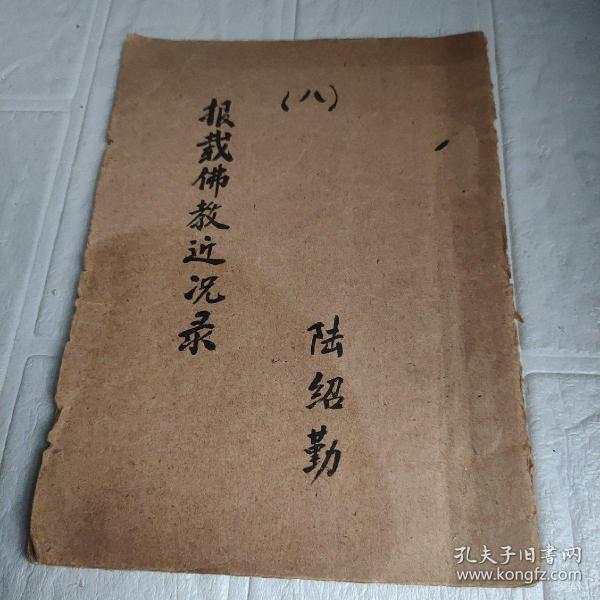 （八）
报载佛教近况录
陆绍勤
孔夫子旧书网
www.kongfz.com